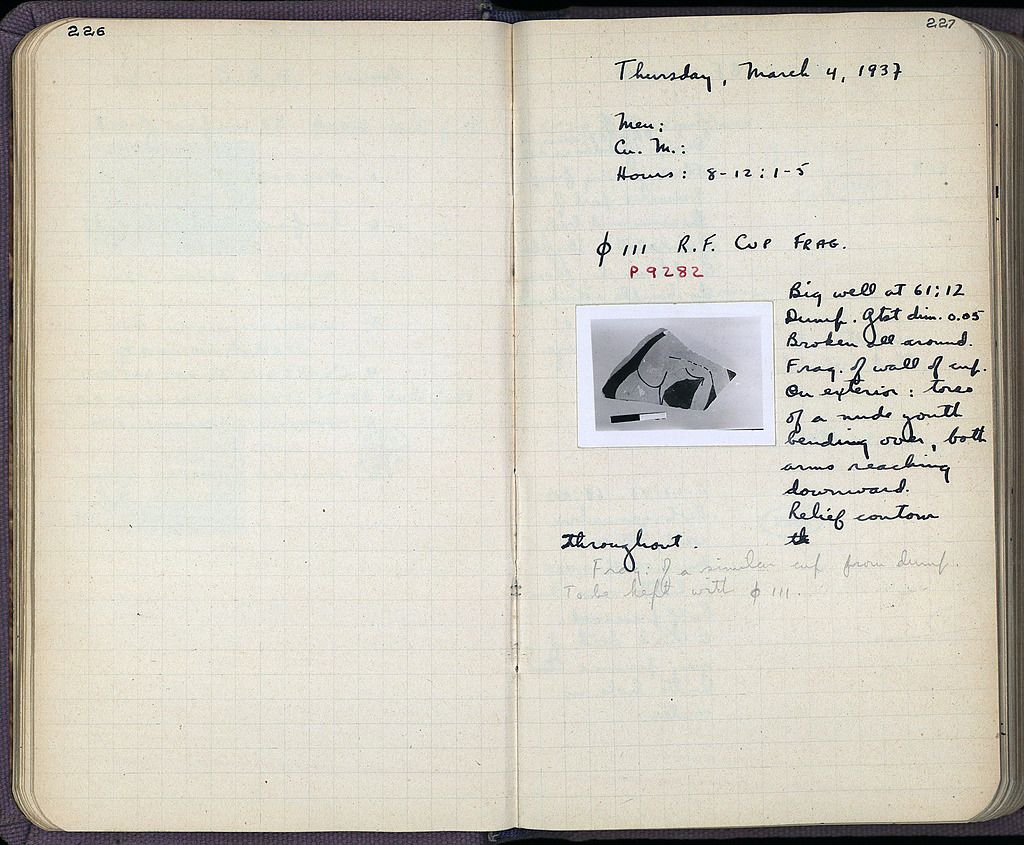 226
227
Thursday, March 4, 1937
Men:
Cu. M.:
Hours: 8-12: 1-5
ϕ 111 R.F. CUP FRAG.
P 9282
Big well at 61; 12
Dump. Gtst dim. 0.05
Broken all around.
Frag. of wall of cup.
On exterior: torso
of a nude youth
bending over, both
arms reaching
downward.
Relief contour
th
throughout.
Frag. of a similar cup from dump.
To be kept with ϕ 111.